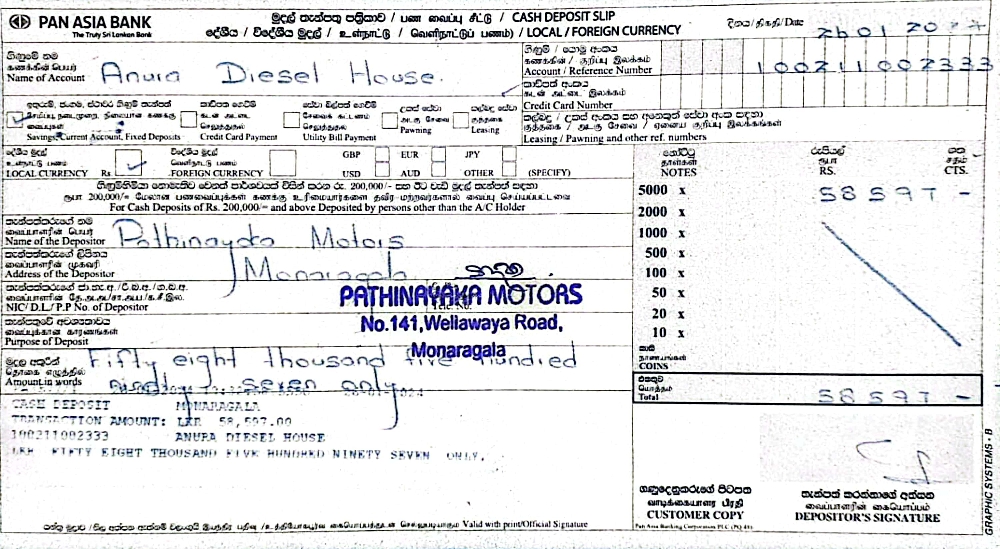 PAN ASIA BANK
The Truly Sri Lankan Bank
මුදල් තැන්පතු පත්‍රිකාව / பண வைப்பு சீட்டு / CASH DEPOSIT SLIP
දේශීය / විදේශීය මුදල් / உள்நாட்டு / வெளிநாட்டுப் பணம் / LOCAL / FOREIGN CURRENCY
දිනය / திகதி / Date
26 01 20
ගිණුමේ නම
கணக்கின் பெயர்
Name of Account
Anura Diesel House.
ගිණුම් / යොමු අංකය
கணக்கின் / குறிப்பு இலக்கம்
Account / Reference Number
100211002333
කාඩ්පත් අංකය
கடன் அட்டை இலக்கம்
Credit Card Number
ඉතුරුම්, ජංගම, ස්ථාවර ගිණුම් තැන්පත්
சேமிப்பு, நடைமுறை, நிலையான கணக்கு வைப்புகள்
Savings, Current Account, Fixed Deposits
කාඩ්පත් ගෙවීම්
கடன் அட்டை செலுத்துதல்
Credit Card Payment
සේවා බිල්පත් ගෙවීම්
சேவைக் கட்டணம் செலுத்துதல்
Utility Bill Payment
උකස් සේවා
அடகு சேவை
Pawning
කල්බදු සේවා
குத்தகை
Leasing
කල්බදු / උකස් අංකය සහ අනෙකුත් සේවා අංක සඳහා
குத்தகை / அடகு சேவை / ஏனைய குறிப்பு இலக்கங்கள்
Leasing / Pawning and other ref. numbers
දේශීය මුදල්
உள்நாட்டு பணம்
LOCAL CURRENCY Rs
විදේශීය මුදල්
வெளிநாட்டு பணம்
FOREIGN CURRENCY
GBP EUR JPY
USD AUD OTHER (SPECIFY)
ගිණුම්හිමියා නොමැතිව වෙනත් පාර්ශවයක් විසින් කරන රු. 200,000/- සහ ඊට වැඩි මුදල් තැන්පත් සඳහා
ரூபா 200,000/= மேலான பணவைப்புக்கள் கணக்கு உரிமையாளர்களை தவிர மற்றவர்களால் வைப்பு செய்யப்பட்டவை
For Cash Deposits of Rs. 200,000/= and above Deposited by persons other than the A/C Holder
තැන්පත්කරුගේ නම
வைப்பாளரின் பெயர்
Name of the Depositor
Pathinayaka Motors
තැන්පත්කරුගේ ලිපිනය
வைப்பாளரின் முகவரி
Address of the Depositor
Monaragala
NIC/ D.L./ P.P No. of Depositor
PATHINAYAKA MOTORS
No.141, Wellawaya Road,
Monaragala
තැන්පතුවේ අවශ්‍යතාවය
வைப்புக்கான காரணங்கள்
Purpose of Deposit
මුදල අකුරින්
தொகை எழுத்தில்
Amount in words
Fifty eight thousand five hundred
ninety seven only
නෝට්ටු
தாள்கள்
NOTES
රුපියල්
ரூபா
RS.
ශත
சதம்
CTS.
5000 x 58597 -
2000 x
1000 x
500 x
100 x
50 x
20 x
10 x
කාසි
நாணயங்கள்
COINS
එකතුව
மொத்தம்
Total
58597 -
CASH DEPOSIT MONARAGALA
TRANSACTION AMOUNT: LKR 58,597.00
100211002333 ANURA DIESEL HOUSE
LKR FIFTY EIGHT THOUSAND FIVE HUNDRED NINETY SEVEN ONLY.
Valid with print/Official Signature
ගණුදෙනුකරුගේ පිටපත
வாடிக்கையாளர் பிரதி
CUSTOMER COPY
Pan Asia Banking Corporation PLC (PQ 48)
තැන්පත් කරන්නාගේ අත්සන
வைப்பாளரின் கையொப்பம்
DEPOSITOR'S SIGNATURE
GRAPHIC SYSTEMS - B